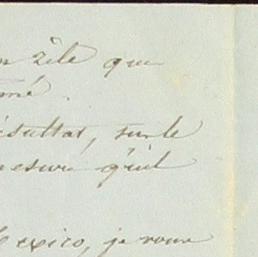 zèle que
mé.
résultat, sur le
mesure qu'il
Mexico, je vous